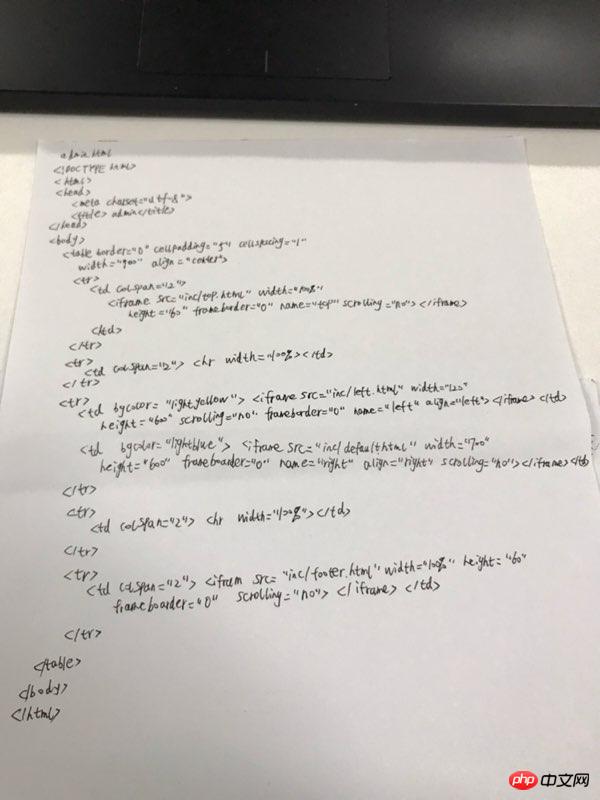 admin.html
<!DOCTYPE html>
<html>
<head>
<meta charset="utf-8">
<title> admin</title>
</head>
<body>
<table border="0" cellpadding="5" cellspacing="1"
width="900" align="center">
<tr>
<td colspan="2">
<iframe src="inc/top.html" width="100%"
height="60" frameborder="0" name="top" scrolling="no"></iframe>
</td>
</tr>
<tr>
<td colspan="2"> <hr width="100%></td>
</tr>
<tr>
<td bgcolor="lightyellow"> <iframe src="inc/left.html" width="120"
height="600" scrolling="no" frameborder="0" name="left" align="left"></iframe> </td>
<td bgcolor="lightblue"> <iframe src="inc/default.html" width="700"
height="600" frameboarder="0" name="right" align="right" scrolling="no"></iframe></td>
</tr>
<tr>
<td colspan="2"> <hr width="100%"></td>
</tr>
<tr>
<td colspan="2"> <ifram src="inc/footer.html" width="100%" height="60"
frameboarder="0" scrolling="no"> </iframe> </td>
</tr>
</table>
</body>
</html>
php 中文网